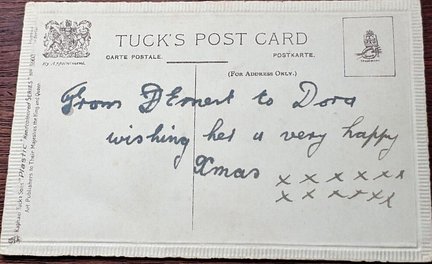 TUCK'S POST CARD
CARTE POSTALE. POSTKARTE.
By Appointment.
(FOR ADDRESS ONLY.)
From Ernest to Dora
wishing her a very happy
Xmas x x x x x x
x x x x x x
Raphael Tuck & Sons' "Plastic
Publishers to Their Majesties the King and Queen